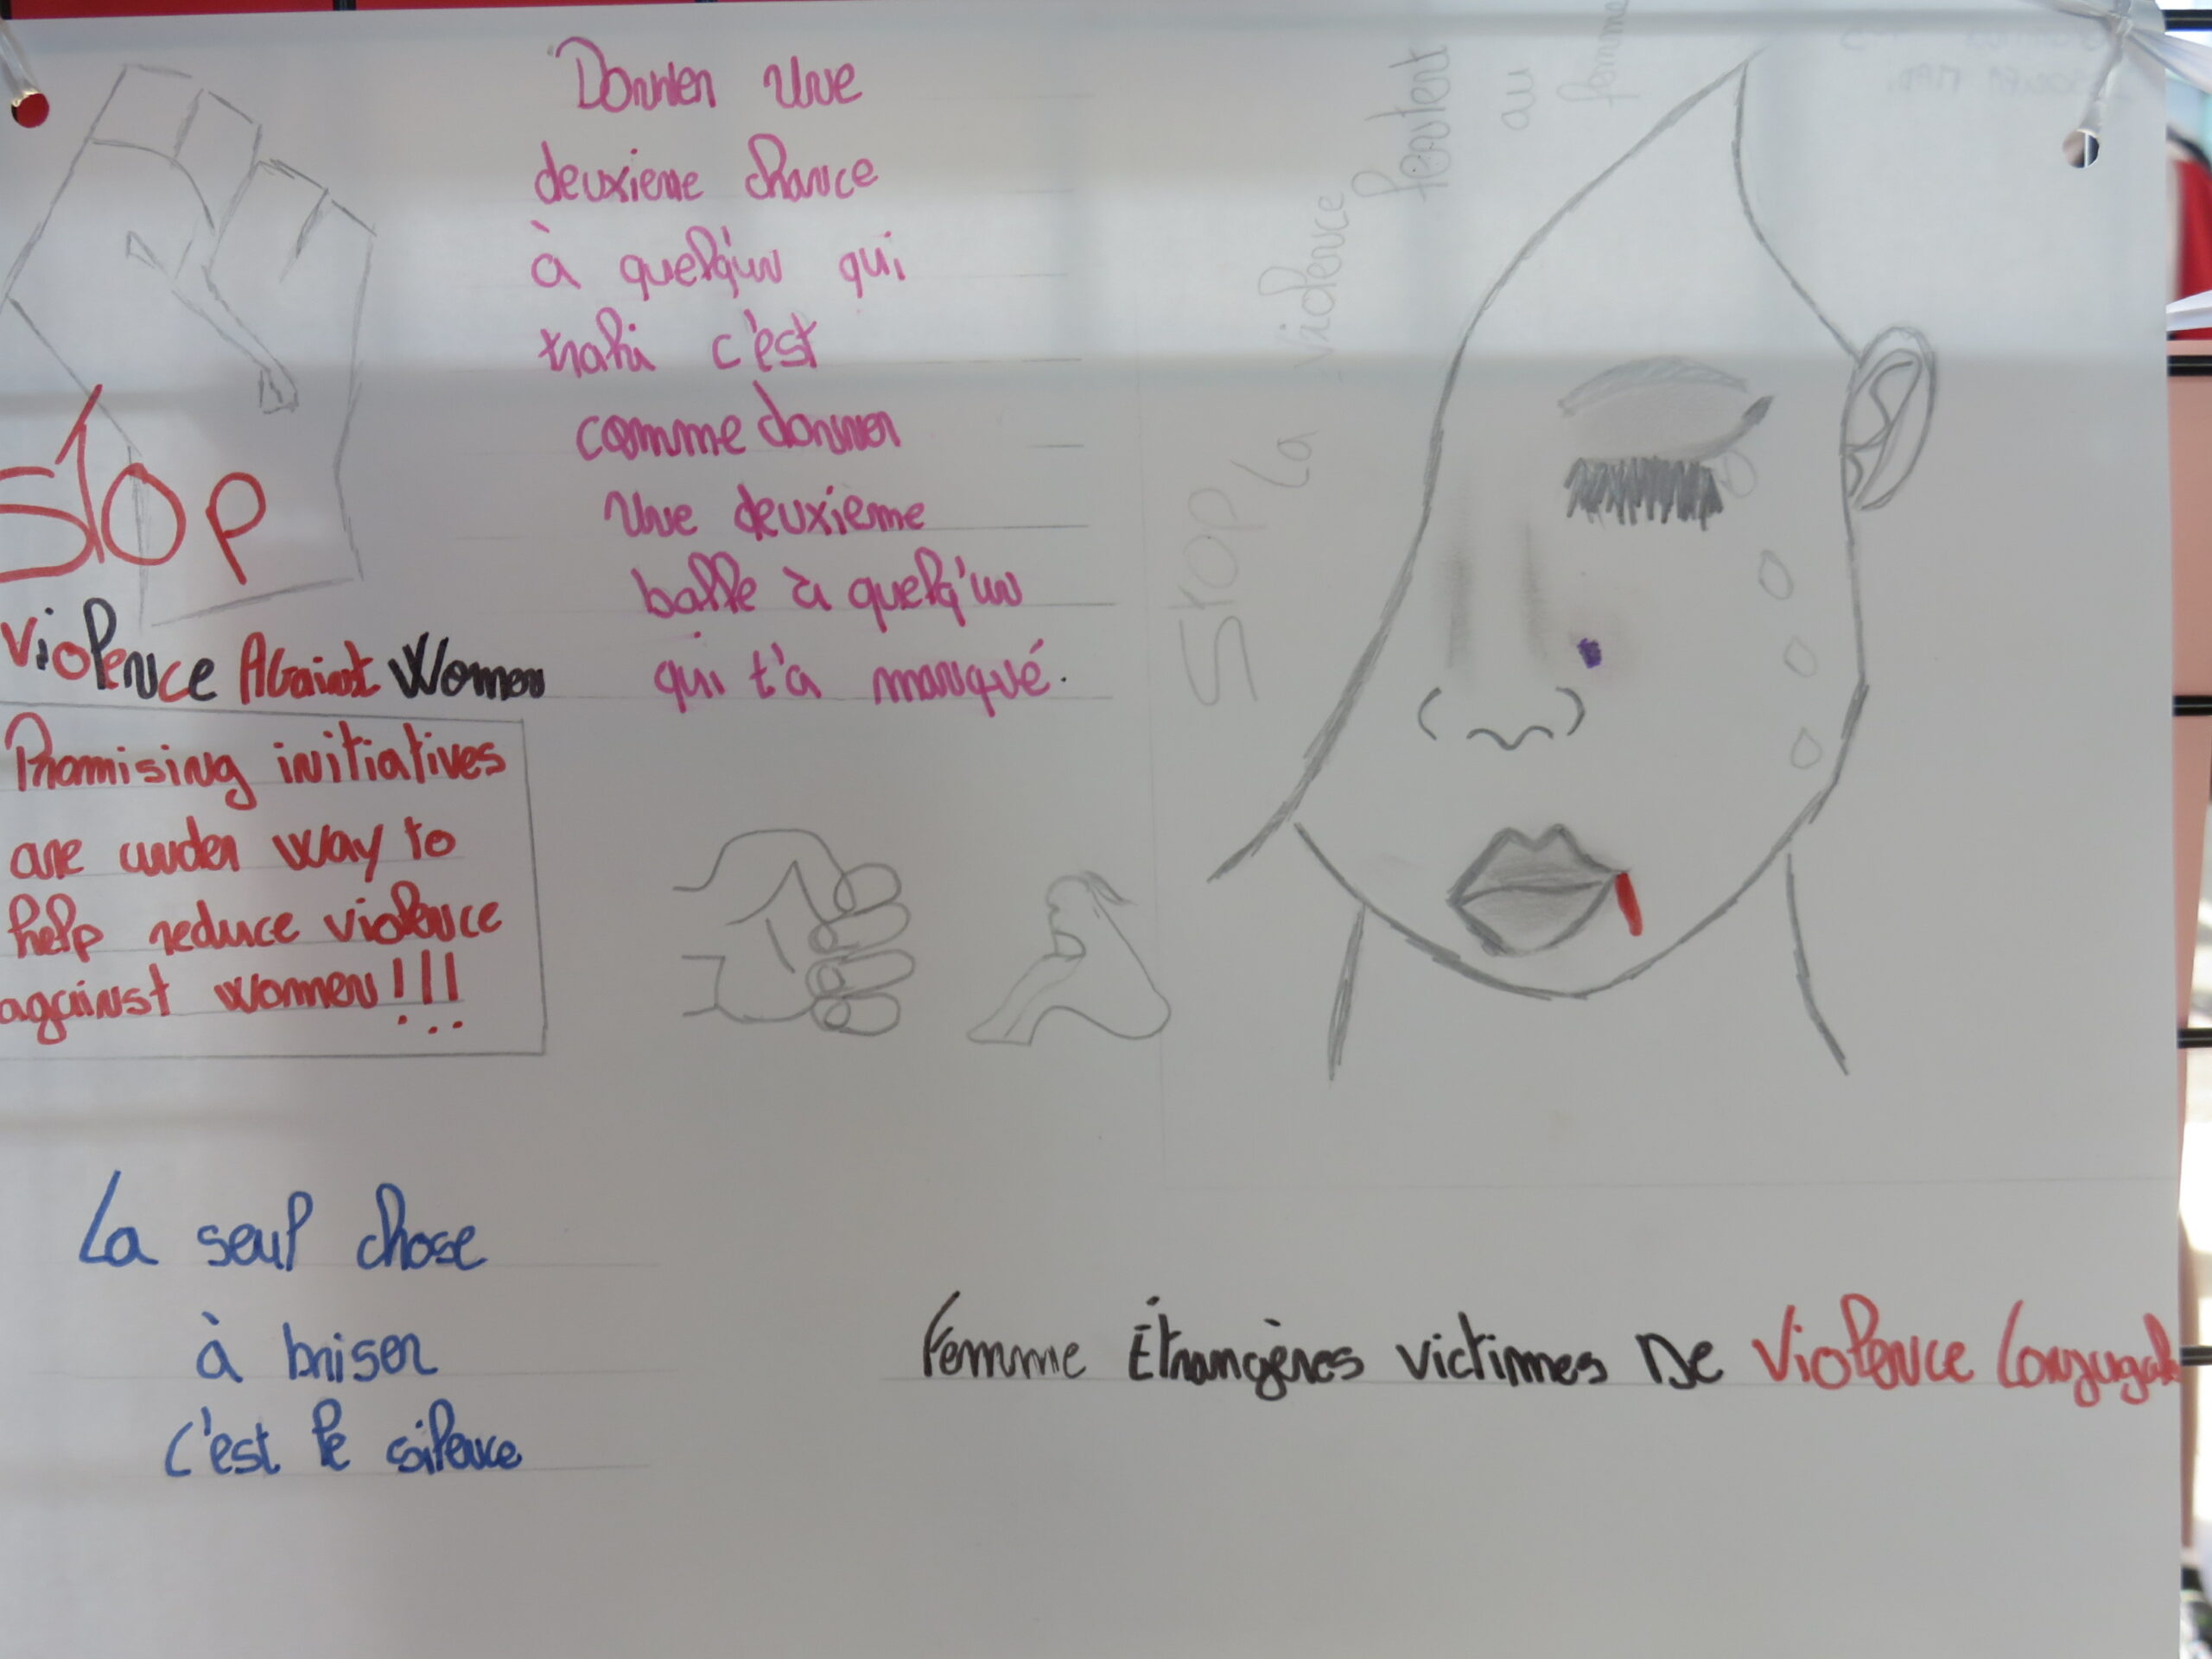 STOP
Violence Against Women
Promising initiatives
are under way to
help reduce violence
against women!!!
Donner Une
deuxieme chance
à quelq'un qui
trahi c'est
comme donner
Une deuxieme
balle à quelq'un
qui t'a manqué.
STOP La violence
au femme
La seul chose
à briser
c'est le silence
Femme Étrangères victimes De Violence Conjugale